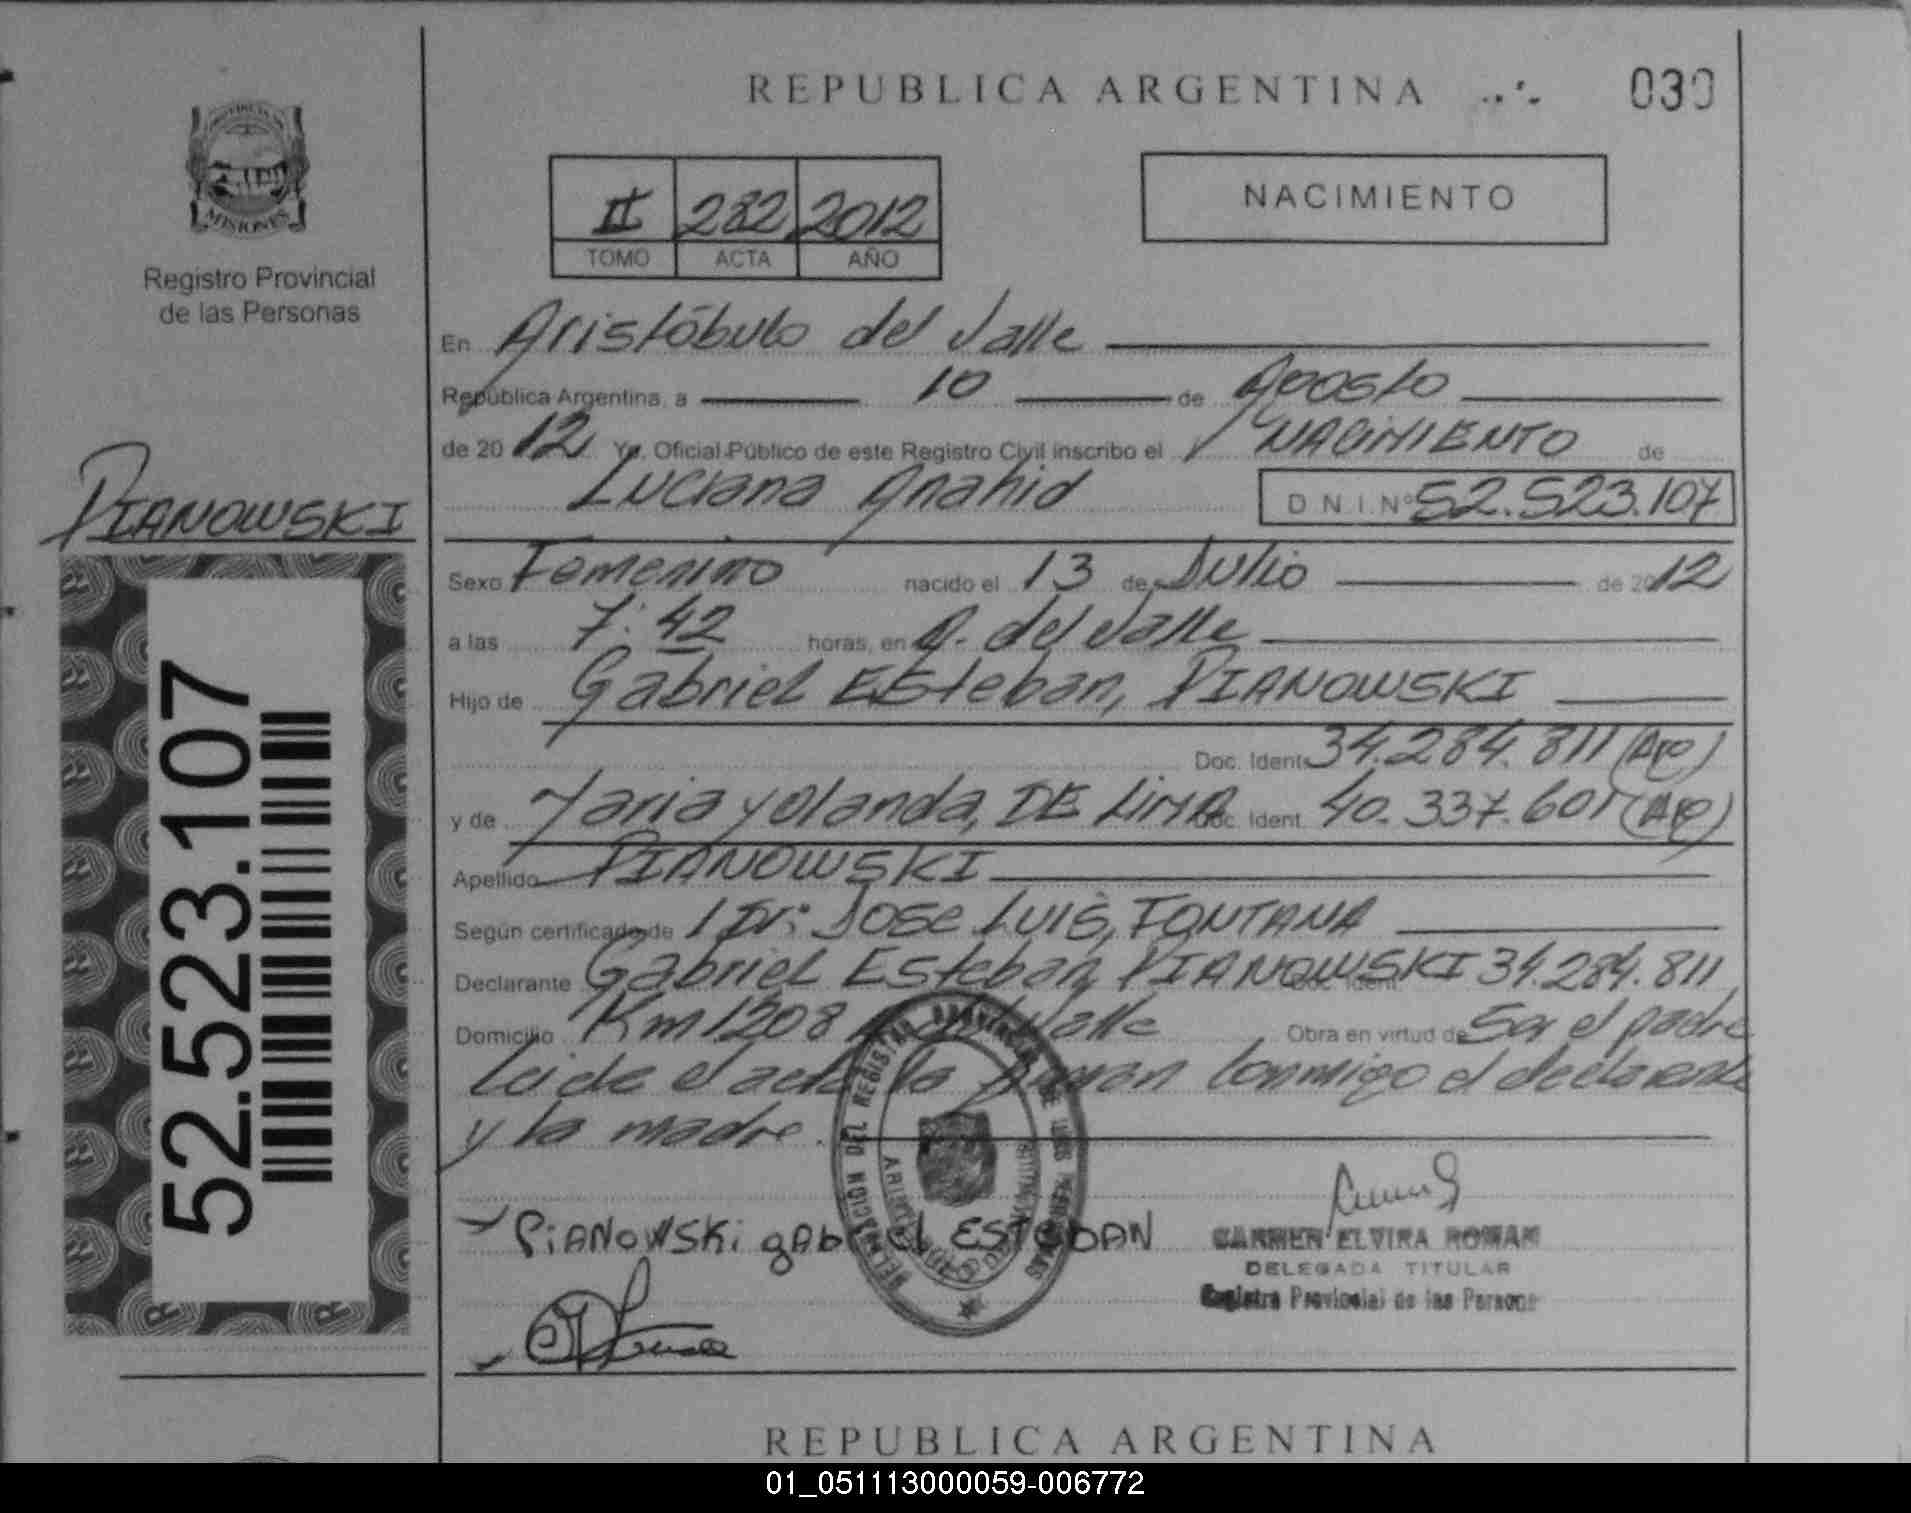 REPUBLICA ARGENTINA
030
MISIONES
Registro Provincial
de las Personas
II 282 2012
TOMO ACTA AÑO
NACIMIENTO
En Aristóbulo del Valle
República Argentina, a 10 de Agosto
de 2012 Yo, Oficial Público de este Registro Civil inscribo el NACIMIENTO de
Luciana Anahid D.N.I.Nº 52.523.107
PIANOWSKI
Sexo Femenino nacido el 13 de Julio de 2012
a las 7:42 horas, en A. del Valle
Hijo de Gabriel Esteban, PIANOWSKI
Doc. Ident. 34.284.811 (Arg)
y de Maria Yolanda, DE LIMA Doc. Ident. 40.337.601 (Arg)
Apellido PIANOWSKI
Según certificado de Dr: Jose Luis, FONTANA
Declarante Gabriel Esteban, PIANOWSKI Doc. Ident. 34.284.811
Domicilio Km 1208 Valle Obra en virtud de Ser el padre
Leida el acta la firman conmigo el declarante
y la madre.
52.523.107
PiANOWSKi gABriEl ESTEBAN
CARMEN ELVIRA ROMAN
DELEGADA TITULAR
Registro Provincial de las Personas
REPUBLICA ARGENTINA
01_051113000059-006772